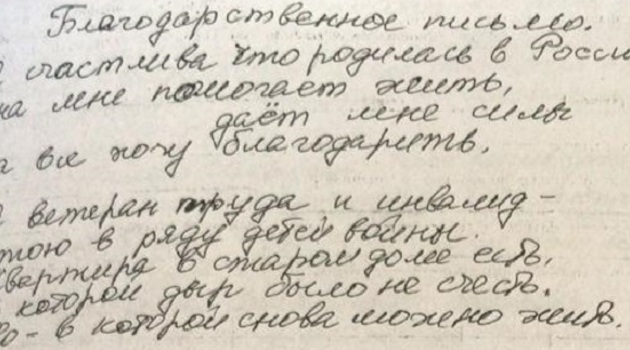 Благодарственное письмо.
счастлива что родилась в Росси
на мне помогает жить,
даёт мне силы
вие хочу благодарить,
ветеран труда и инвалид -
тою в ряду детей войны.
квартира в старом доме есть,
которой дыр было не счесть.
- в которой снова можно жить.